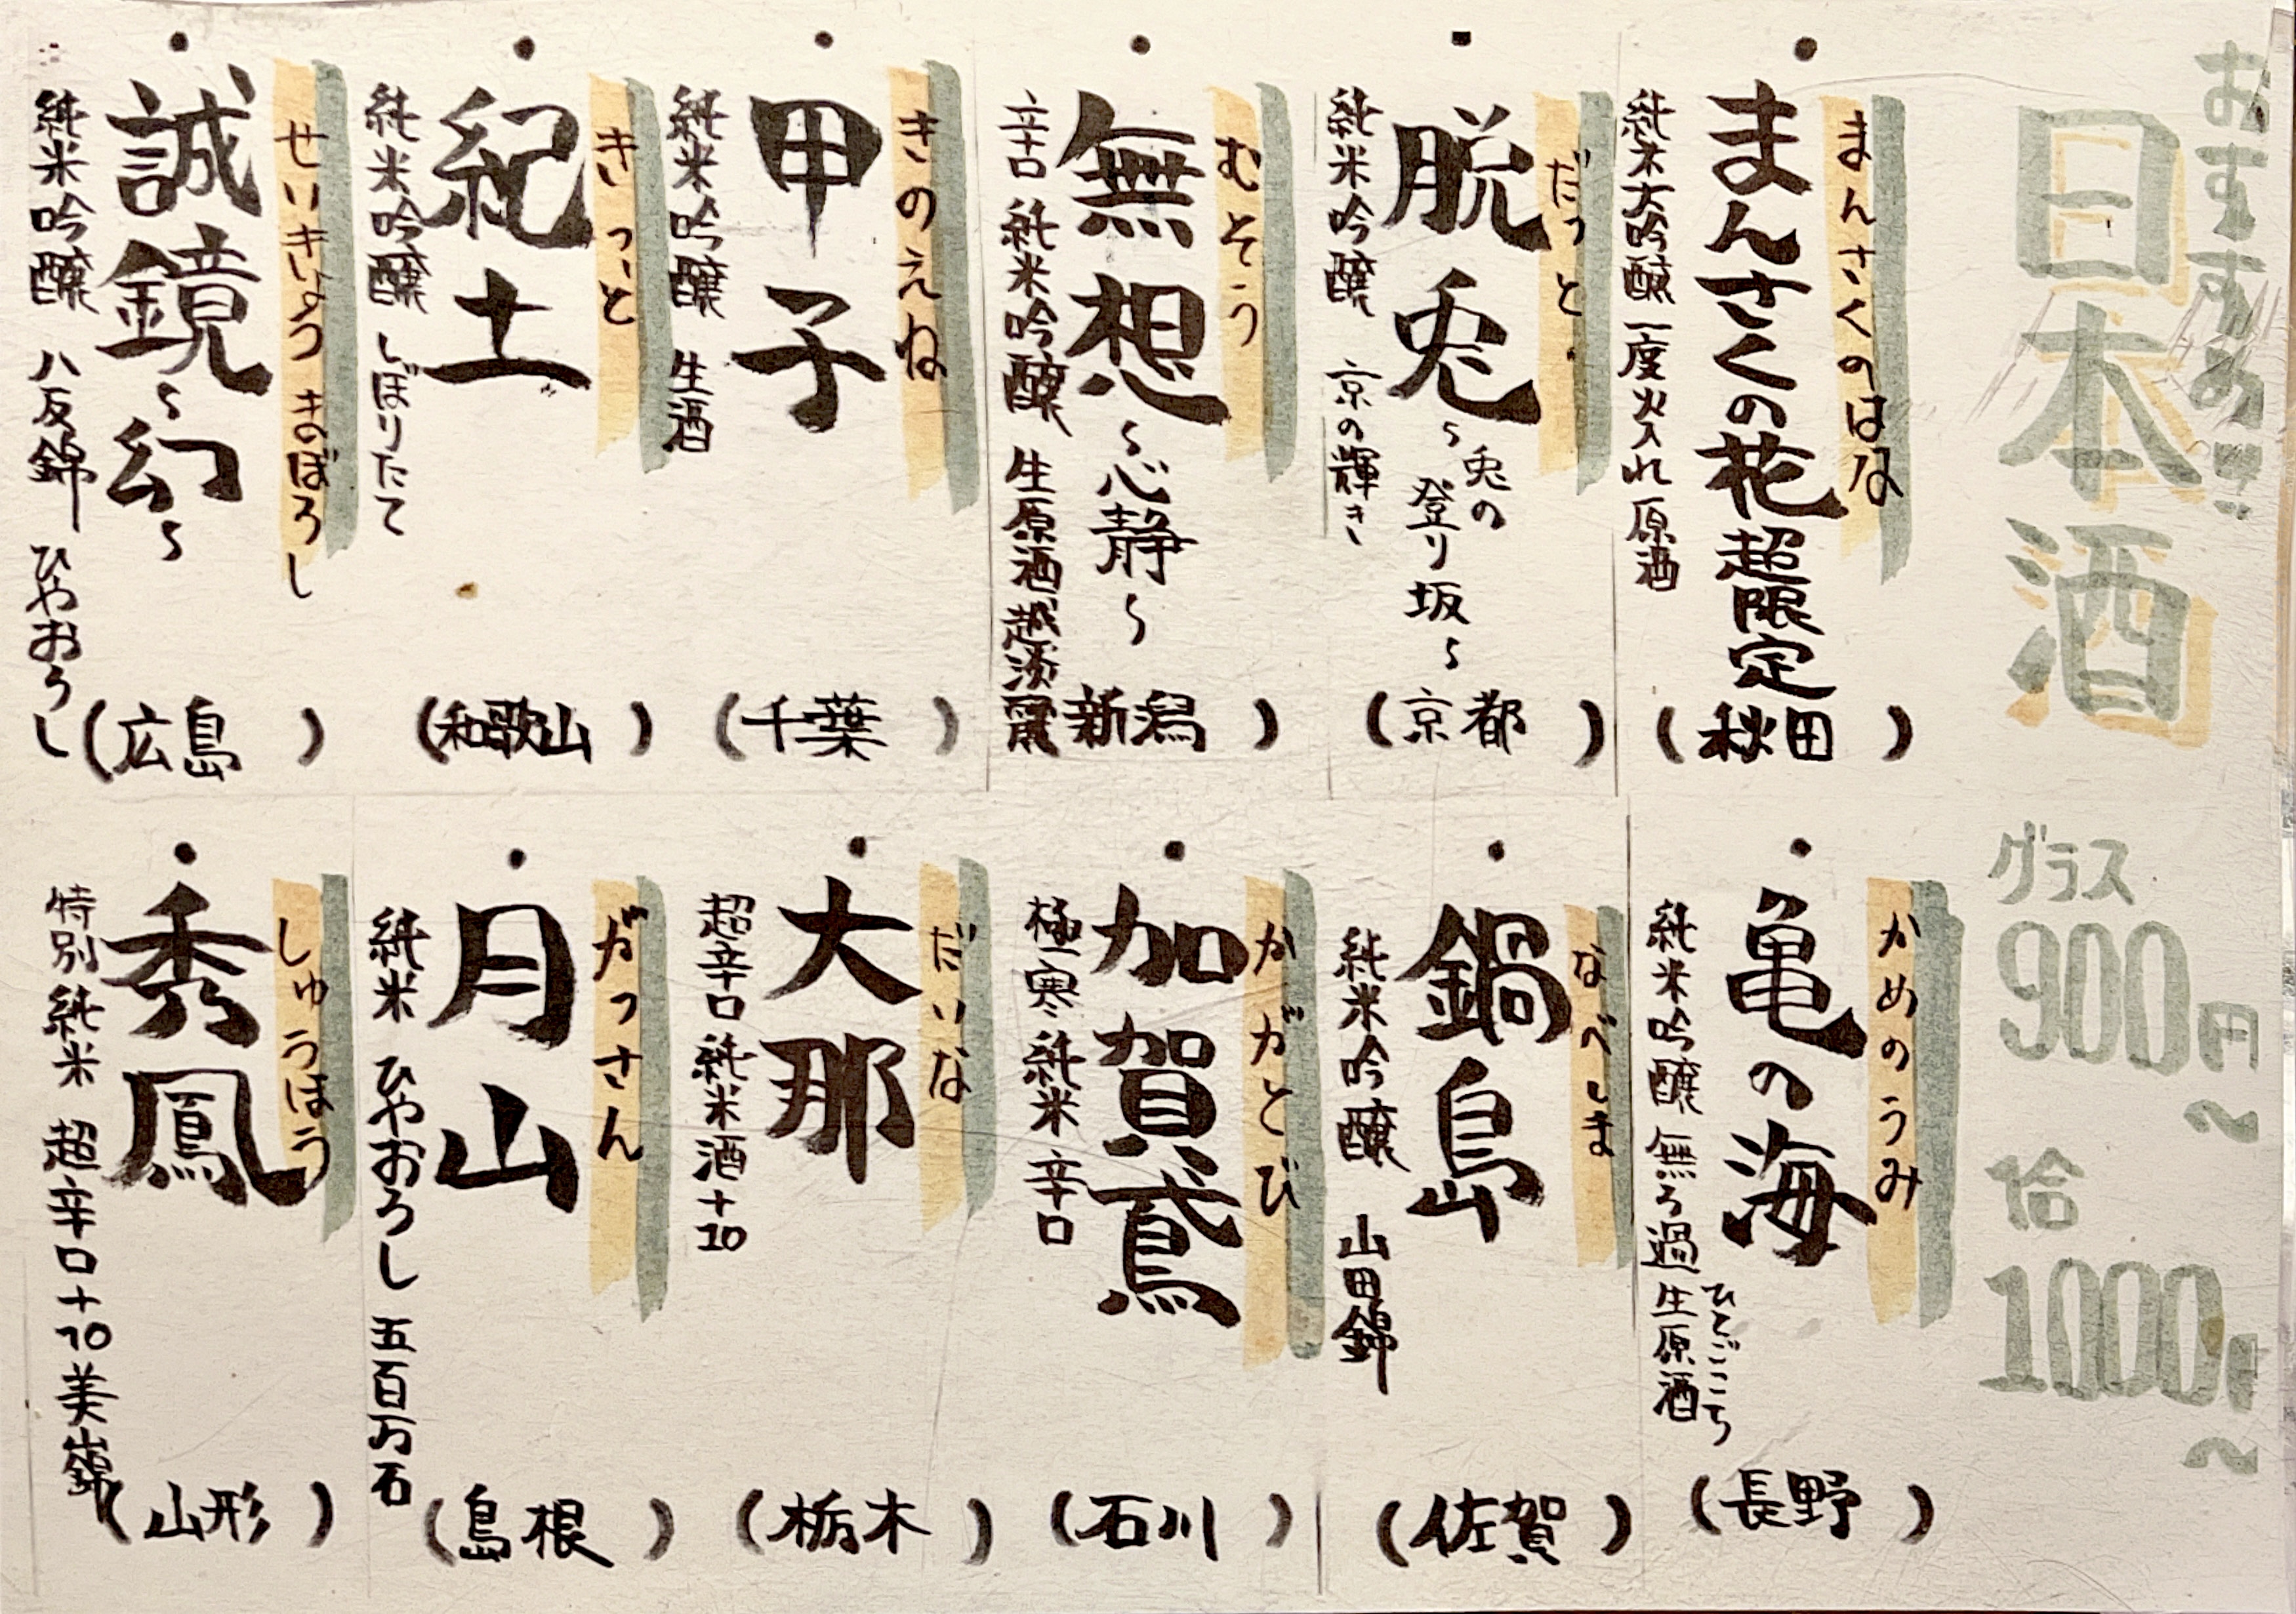 おすすめ
日本酒
グラス
900円～
合
1000円～
まんさくのはな
まんさくの花 超限定
純米大吟醸 一度火入れ 原酒
（秋田）
だっと
脱兎
～兎の登り坂～
純米吟醸 京の輝き
（京都）
むそう
無想～心静～
辛口 純米吟醸 生原酒 越淡麗
（新潟）
きのえね
甲子
純米吟醸 生酒
（千葉）
きっど
紀土
純米吟醸 しぼりたて
（和歌山）
せいきょう まぼろし
誠鏡～幻～
純米吟醸 八反錦 ひやおろし
（広島）
かめのうみ
亀の海
純米吟醸 無ろ過 生原酒
ひとごこち
（長野）
なべしま
鍋島
純米吟醸 山田錦
（佐賀）
かがとび
加賀鳶
極寒 純米 辛口
（石川）
だいな
大那
超辛口 純米酒 +10
（栃木）
がっさん
月山
純米 ひやおろし 五百万石
（島根）
しゅうほう
秀鳳
特別純米 超辛口+10 美山錦
（山形）